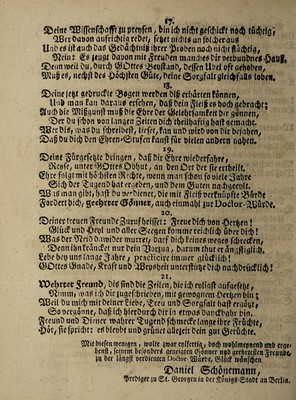 17.
Deine Wissenschafft zu preysen, bin ich nicht geschickt noch tüchtig,
Wer davon aufrichtig redet, setzt nichts an solcher aus
Und es ist auch das Gedächtniß ihrer Proben noch nicht flüchtig,
Nein! Es zeugt davon mit Freuden manches dir verbundnes Hauß,
Dem weil du, durch GOttes Beystand, dessen Ubel oft gehoben,
Muß es, nechst des Höchsten Güte, deine Sorgfalt gleichfalls loben.
18.
Deine jetzt gedruckte Bogen werden diß erhärten können,
Und man kan daraus ersehen, daß dein Fleiß es hoch gebracht;
Auch die Mißgunst muß dir die Ehre der Gelehrsamkeit gönnen,
Der du schon von langen Zeiten dich theilhaftig hast gemacht.
Wer dis, was du schreibest, lieset, kan und wird von dir bejahen,
Daß du dich den Ehren-Stufen kanst für vielen andern nahen.
19.
Deine Fürgesetzte bringen, daß dir Ehre wiederfahre,
Reuse, unter GOttes Obhut, an den Ort der sie ertheilt.
Ehre folgt mit höchsten Recht, wenn man schon so viele Jahr
Sich der Tugend hat ergeben, und dem Guten nachgeeilt.
Was man gibt, hast du verdienet, die mit Fleiß verknüpfte Bürde
Fordert dich, geehrter Gönner, auch einmahl zur Doctor-Würde.
20.
Deiner treuen Freunde Zuruf heisset: Freue dich von Hertzen!
Glück und Heyl und aller Seegen komme reichlich über dich!
Was der Neid dawider murret, darf dich keines weges schrecken,
Denn ihn kräncke nur dein
Lebe bey uns lange Jahre, practicire immer glücklich!
GOttes Gnade, Kraft und Weysheit unterstütze dich nachdrücklich!
21.
Wehrter Freund, dis sind die Zeilen, die ich eylfast aufgesetzt,
Nimm, was ich dir zugeschrieben, mit gewognem Hertzen hin;
Weil du mich mit deiner Liebe, Treu und Sorgfalt hast ergötzt,
So vergönne, daß ich hierdurch dir in etwas danckbahr bin.
Freund und Diener wahrer Tugend schmecke lange ihre Früchte,
Hör, sie spricht: es bleybt und grünet allezeit dein gut Gerüchte.
Mit diesen wenigen, wolte zwar eylfertig, doch wohlmeynend und erge-
benst, seinem besonders geneigten Gönner und geehrtesten Freunde,
zu der längst verdienten Doctor-Würde, Glück wünschen
Daniel Schönemann,
Prediger zu St. Georgen in der Königs-Stadt an Berlin.